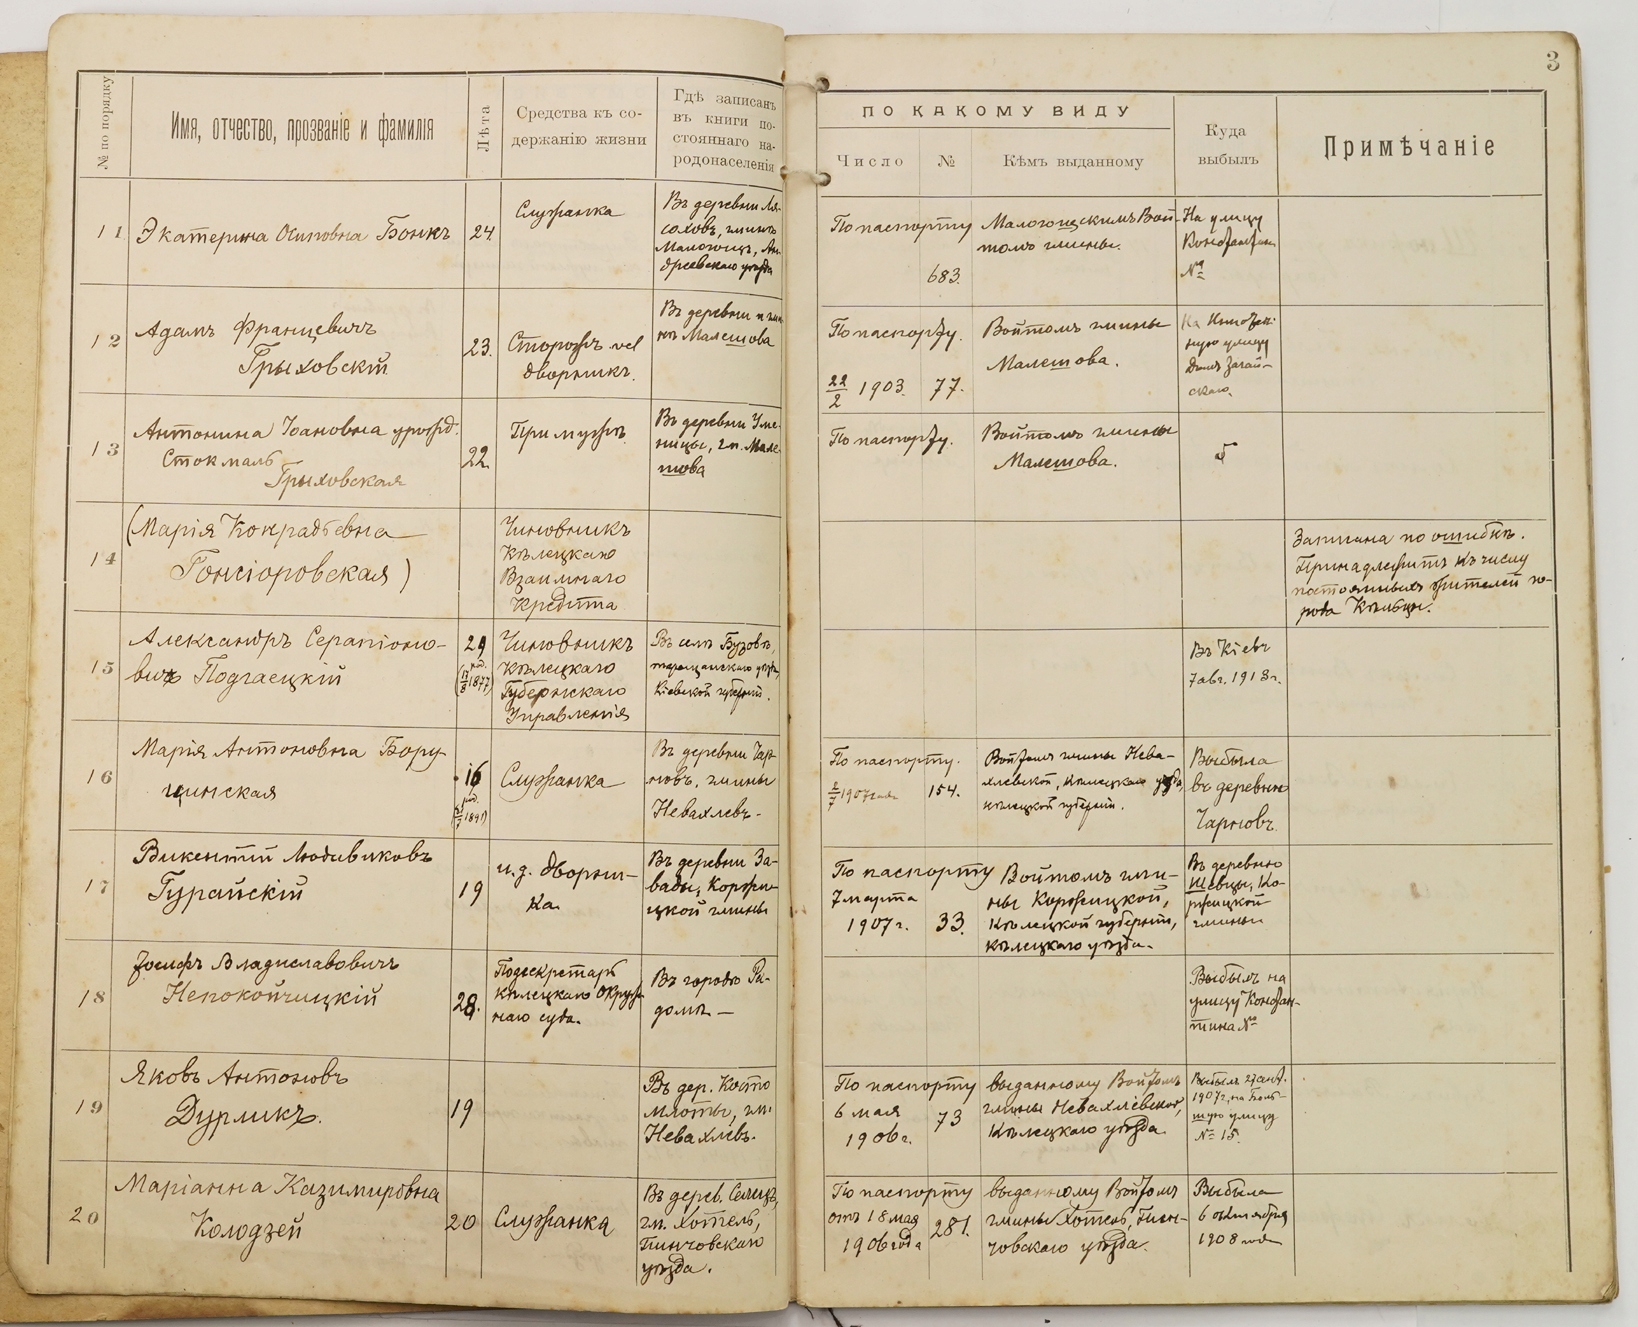 3
№ по порядку
Имя, отчество, прозваніе и фамилія
Лѣта
Средства къ со-
держанію жизни
Гдѣ записанъ
въ книги по-
стояннаго на-
родонаселенія
ПО КАКОМУ ВИДУ
Число
№
Кѣмъ выданному
Куда
выбылъ
Примѣчаніе
11
Экатерина Осиповна Бонкъ
24.
Служанка
Въ деревни Ля-
соховъ, гмины
Малогощъ, Ан-
дреевскаго уѣзда
По паспорту
683.
Малогощскимъ Вой-
томъ гмины.
На улицу
№
12
Адамъ Францевичъ
Грыховскій
23.
Сторожъ vel
дворникъ.
Въ деревни и гми-
нѣ Малешова
По паспорту.
22/2 1903.
77.
Войтомъ гмины
Малешова.
На
улицу
13
Антонина Іоановна урожд.
Стокмалъ
Грыховская
22.
При мужѣ.
Въ деревни Уме-
ницы, гм. Мале-
шова
По паспорту.
Войтомъ гмины
Малешова.
14
(Марія Конрадьевна
Гонсіоровская)
Чиновникъ
Кѣлецкаго
Взаимнаго
Кредита
Записана по ошибкѣ.
Принадлежитъ къ числу
постоянныхъ жителей го-
рода Кѣльцы.
15
Александръ Серапіоно-
вичъ Подгаецкій
29
род.
1877)
Чиновникъ
Кѣлецкаго
Губернскаго
Управленія
Въ селѣ Бузовѣ,
таращанскаго уѣзда,
Кіевской губерніи.
Въ Кіевъ
7 авг. 1913 г.
16
Марія Антоновна Бору-
цинская
16
род.
1891)
Служанка
Въ деревни Чар-
новъ, гмины
Невахлевъ-
По паспорту.
2/7 1907 года
154.
Войтомъ гмины Нева-
хлевской, Кѣлецкаго уѣзда,
кѣлецкой губерніи.
Выбыла
въ деревню
Чарновъ
17
Викентій Людвиковъ
Гурайскій
19
и. д. дворни-
ка
Въ деревни За-
вады, Коржи-
цкой гмины
По паспорту
7 марта
1907 г.
33.
Войтомъ гми-
ны Коржицкой,
Кѣлецкой губерніи,
кѣлецкаго уѣзда.
Въ деревню
Шевцы, Ко-
ржицкой
гмины
18
Іосифъ Владиславовичъ
Непокойчицкій
28.
Подсекретарь
Кѣлецкаго Окруж-
наго суда.
Въ городѣ Ра-
домѣ —
Выбылъ на
улицу Констан-
тина №
19
Яковъ Антоновъ
Дурликъ.
19
Въ дер. Косто
млоты, гм.
Невахлевъ.
По паспорту
6 мая
1906 г.
73
выданному Войтомъ
гмины Невахлевской,
Кѣлецкаго уѣзда.
Выбылъ 27
1907 г. на Боль-
шую улицу
№ 15.
20
Маріанна Казимировна
Колодзей
20
Служанка
Въ дерев. Селецъ,
гм. Хотель,
Пинчовскаго
уѣзда.
По паспорту
отъ 18 мая
1906 года
281.
выданному Войтомъ
гмины Хотель, Пин-
човскаго уѣзда.
Выбыла
6 октября
1908 года